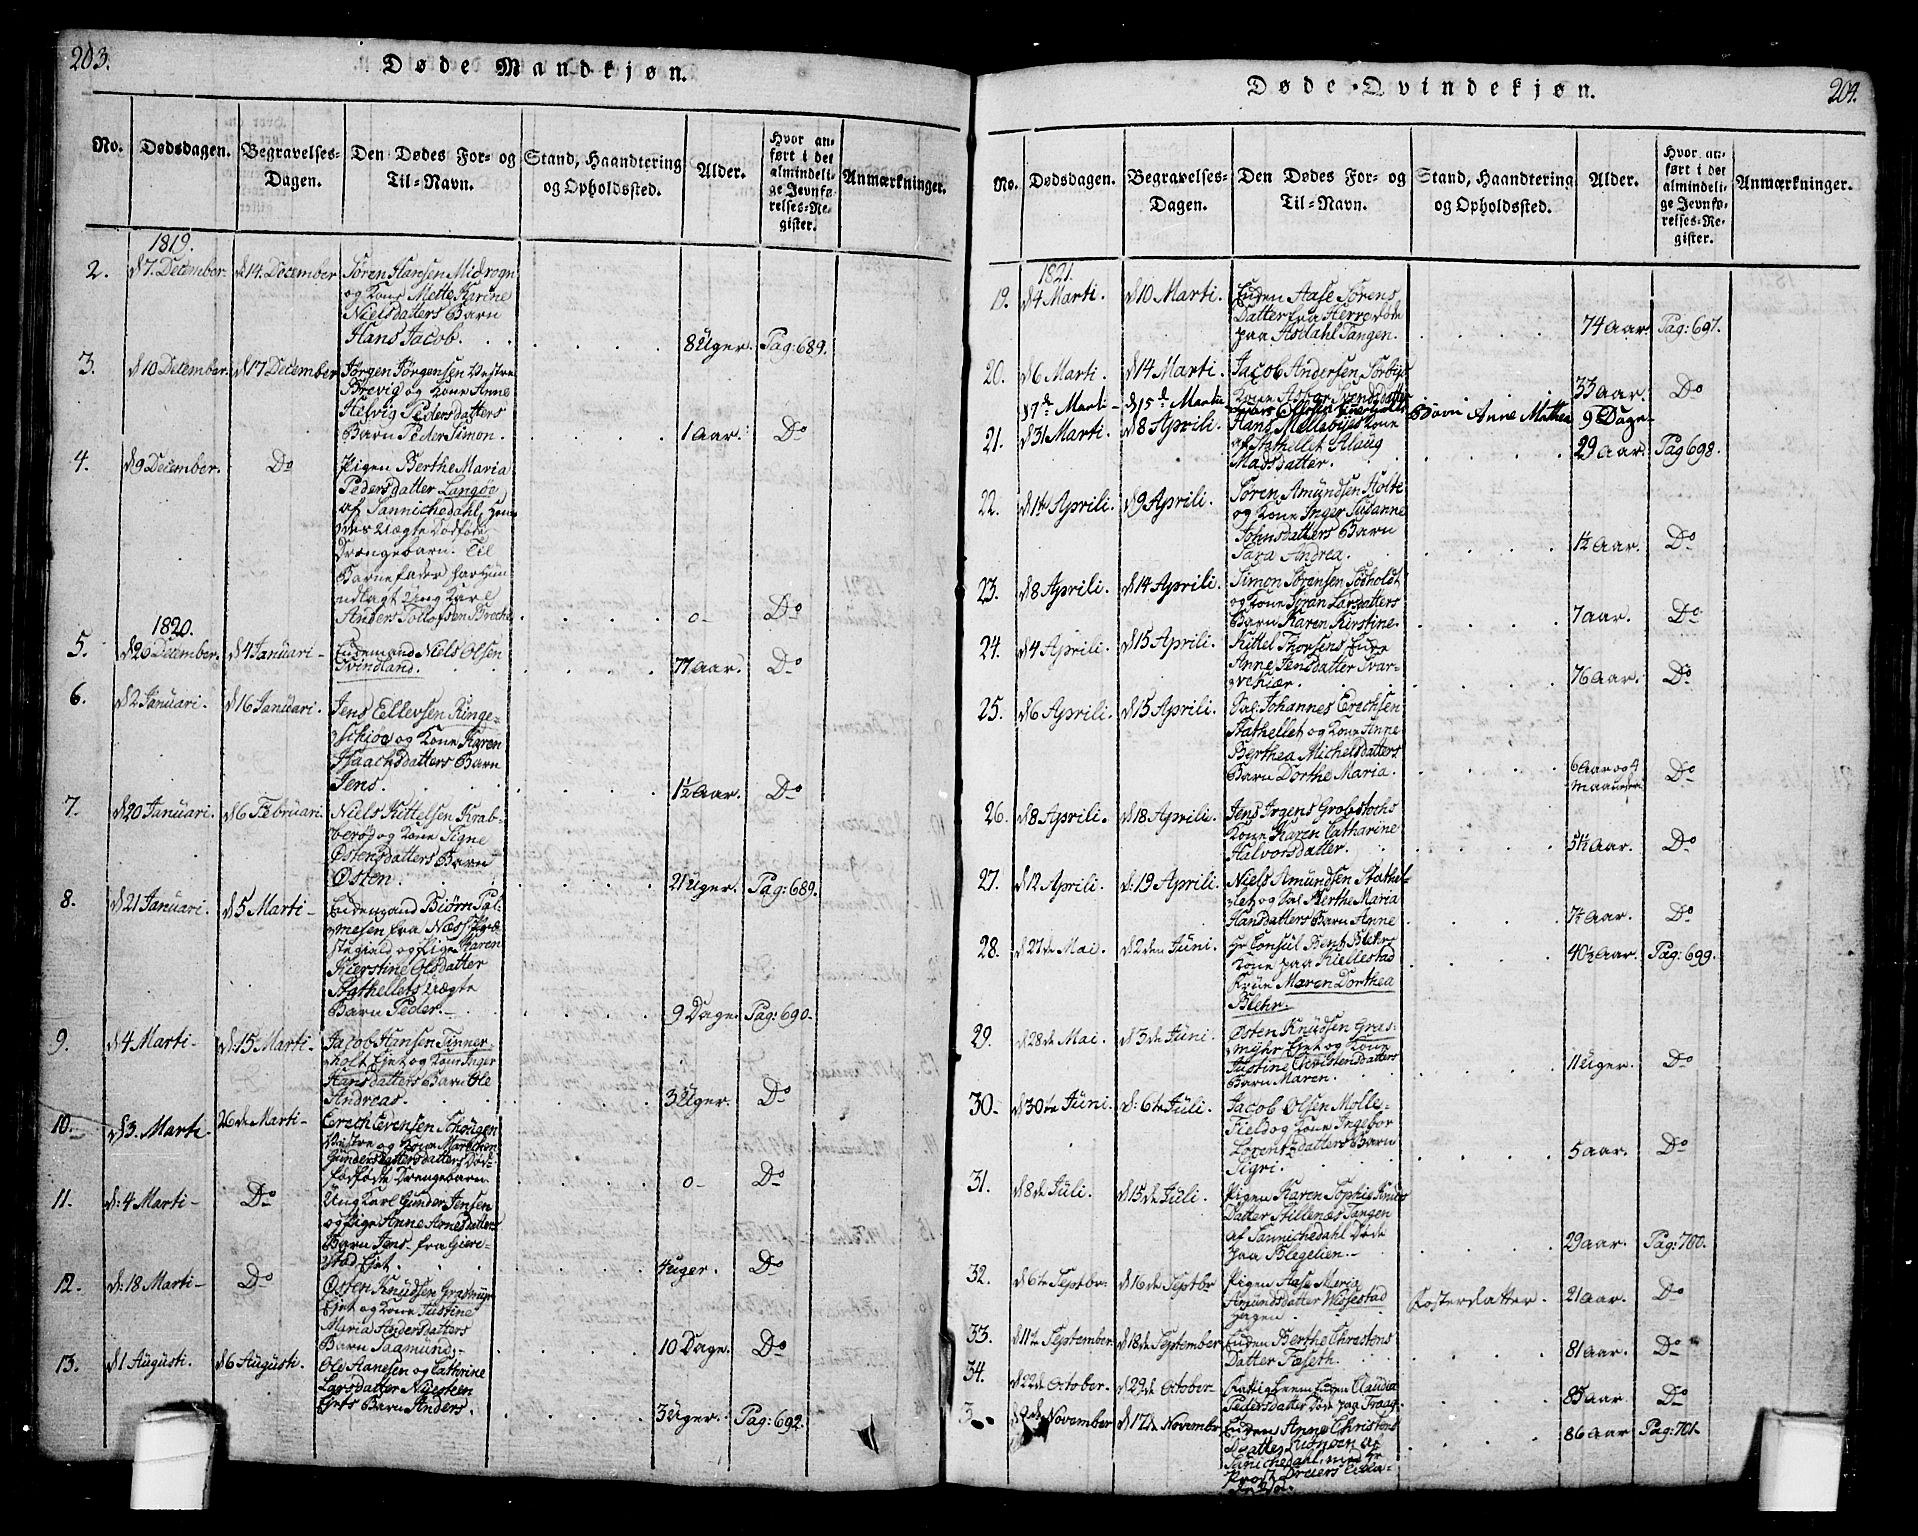 203.
Døde Mandkjøn.
No.
Dødsdagen.
Begravelses-
Dagen.
Den Dødes For- og
Til-Navn.
Stand, Haandtering
og Opholdssted.
Alder.
Hvor an-
ført i det
almindeli-
ge Jevnfø-
relses-Re-
gister.
Anmærkninger.
1819.
2. d 7 December d 14 December Søren Hansen Midrogn
og Kone Mette Karine
Nielsdatters Barn
Hans Jacob. 8 Uger. Pag: 689.
3. d 10 December d 17 December Jørgen Jørgensen Vestre
Brevig og Kone Anne
Helvig Pedersdatters
Barn Peder Simon. 1 Aar. Do
4. d 9 December. Do Pigen Berthe Maria
Pedersdatter Langøe
af Sannichedahl, hen-
des Uægte Dødfødte
Drengebarn. Til
Barnefader har hun
udlagt Ung Karl
Anders Tollofsen 0- Do
1820.
5. d 26 December. d 4 Januari- Enkemand Niels Olsen
Tvindland. 77 Aar. Do
6. d 2 Januari. d 16 Januari. Jens Ellevsen Ringe-
schioe og Kone Karen
Isaachsdatters Barn
Jens. 1½ Aar. Do
7. d 20 Januari. d 6 Februari. Niels Kittelsen Krab-
berød og Kone Signe
Østensdatters Barn
Østen. 21 Uger. Pag: 689.
8. d 21 Januari. d 5 Marti- Enkemand Biørn Pal-
mesen fra Næss
og Pige Karen
Kierstine Olsdatter
Stathellets Uægte
Barn Peder.- 9 Dage. Pag: 690-
9. d 4 Marti- d: 15 Marti- Jacob Hansen Tinner-
holt Ejet og Kone Inger
Hansdatters Barn Ole
Andreas. 3 Uger. Do
10.- d 3. Marti- 26de Marti- Erech Evensen Schougen
Vestre og Kone
Gundersdatters Død-
fødte Drengebarn. 0- Do
11. d: 4 Marti- Do Ung Karl Gunder Jensen
og Pige Anne Arnesdatters
Barn Jens- fra Giere-
stad Ejet. 4 Uger. Do
12. d: 18 Marti- Do Østen Knudsen Grasmyr
Ejet og Kone Justine
Maria Andersdatters
Barn Saamund,- 10 Dage. Do
13. d 1 Augusti. d 6 Augusti. Ole Aanesen og Catherine
Larsdatter
Ejets Barn Anders. 3 Uger. Pag: 692.
204.
Døde Qvindekjøn.
No.
Dødsdagen.
Begravelses-
Dagen.
Den Dødes For- og
Til-Navn.
Stand, Haandtering
og Opholdssted.
Alder.
Hvor an-
ført i det
almindeli-
ge Jevnfø-
relses-Re-
gister.
Anmærkninger.
1821.
19. d 4 Marti. d 10 Marti. Enken Aase Sørens
Datter fra Herre døde
paa Asdahl Tangen. 74 Aar Pag: 697.
20. d 6 Marti. d 14 Marti. Jacob Andersen Sørbye
Kone Svendsdatter 33 Aar. Do
17de Marti- d 15de Martii Barn Anne Mathea 9 Dage
21. d 31 Marti. d 8 Aprili. Hans Mellebyes Kone
af Stathellet Aslaug
Madsdatter. 29 Aar. Pag 698.
22. d 1te Aprili. d 9 Aprili. Søren Amundsen Holte
og Kone Inger Susanne
Johnsdatters Barn
Sara Andrea. 1½ Aar. Do
23. d 8 Aprili. d 14 Aprili. Simon Sørensen Sødholdt
og Kone Søran Larsdatters
Barn Karen Kirstine. 7 Aar. Do
24. d 4 Aprili. d 15 Aprili. Kittel Thorsens Enke
Anne Jensdatter Svar-
vekiær. 76 Aar. Do
25. d 6 Aprili. d 15 Aprili. Sal: Johannes Erechsen
Stathellet og Kone Anne
Berthea Michelsdatters
Barn Dorthe Maria. 6 Aar og 4
Maaneder. Do
26. d 8 Aprili. d 18 Aprili. Jens Jrgens Grobstochs
Kone Karen Catharine
Halvorsdatter. 51½ Aar. Do
27. d 12 Aprili. d: 19 Aprili. Niels Amundsen Stathel-
let og Sal Berthe Maria
Hansdatters Barn Anne 7½ Aar. Do
28. d 27de Mai. d 2den Juni. Hr Consul Bent Blehrs
Kone paa Kiellestad
Frue Maren Dorthea
Blehr. 40½ Aar. Pag: 699.
29. d 28de Mai. d 3de Juni. Østen Knudsen Gras-
myhr Ejet og Kone
Justine Christensdatters
Barn Maren. 11 Uger. Do
30- d 30te Juni. d: 6te Juli. Jacob Olsen Molle-
Field og Kone Ingebor
Lorensdatters Barn
Sigri. 5 Aar. Do
31. d 8de Juli. d 15de Juli. Pigen Karen Sophie Knuds
Datter Stillenæs Tangen
af Sannichedahl Døde
paa Blegelien.- 29 Aar. Pag: 700.
32. d 6te Septbr. d 16de Septbr Pigen Aase Maria
Amundsdatter Wissestad
Hagen. Fosterdatter. 21 Aar. Do
33. d 11te September d 18de September Enken Berthe Chrestens
Datter Faseth. 81 Aar. Do
34. d 22de October. d 29de October- Fattiglem Enken Claudia
Pedersdatter Døde paa Traag. 85 Aar Do
3 d 9de November d 17de November Enken Anne Christens
Datter af
Sanichedahl, med Hr
Provst Dreiers
 86 Aar Pag: 701-